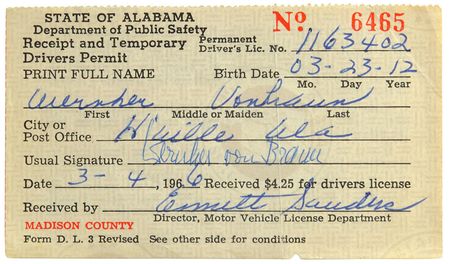 STATE OF ALABAMA
Department of Public Safety
No. 6465
Receipt and Temporary
Drivers Permit
Permanent Driver's Lic. No. 1163402
PRINT FULL NAME Birth Date 03-23-12
Mo. Day Year
Wernher Vonbraun
First Middle or Maiden Last
City or
Post Office H'ville Ala
Usual Signature Wernher von Braun
Date 3-4, 1966 Received $4.25 for drivers license
Received by Emmett Sanders
Director, Motor Vehicle License Department
MADISON COUNTY
Form D. L. 3 Revised See other side for conditions